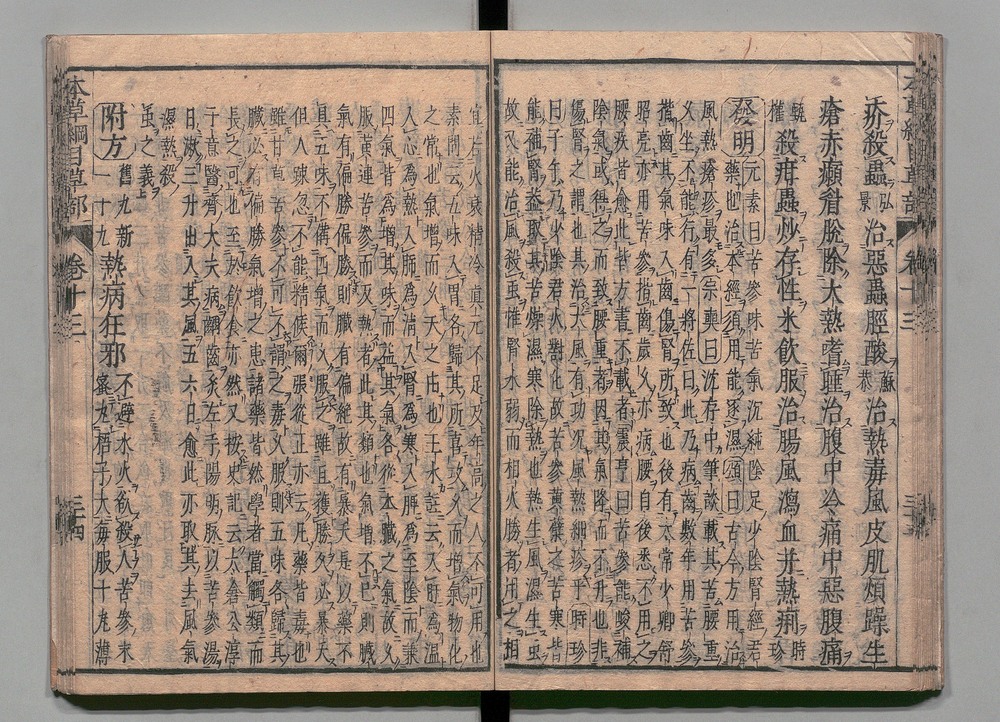 疥殺蟲弘景治惡蟲脛酸蘇恭治熱毒風皮肌煩躁生
瘡赤癩眉脫除大熱嗜睡治腹中冷痛中惡腹痛
甄權殺疳蟲炒存性米飲服治腸風瀉血并熱痢時珍
發明元素曰苦參味苦氣沉純陰足少陰腎經君
藥也治本經須用能逐濕頌曰古今方用治
風熱瘡疹最多宗奭曰沈存中筆談載其苦腰重
久坐不能行有一將佐曰此乃病齒數年用苦參
揩齒其氣味入齒傷腎所致也後有太常少卿舒
昭亮亦用苦參揩齒歲久亦病腰自後悉不用之
腰疾皆愈此皆方書不載者震亨曰苦參能峻補
陰氣或得之而致腰重者因其氣降而不升也非
傷腎之謂也其治大風有功况風熱細疹乎時珍
曰子午乃少陰君火對化故苦參黃蘗之苦寒皆
能補腎蓋取其苦燥濕寒除熱也熱生風濕生蟲
故又能治風殺蟲惟腎水弱而相火勝者用之相
宜若火衰精冷真元不足及年高之人不可用也
素問云五味入胃各歸其所喜攻久而增氣物化
之常也氣增而久夭之由也王冰註云入肝為溫
入心為熱入肺為清入腎為寒入脾為至陰而兼
四氣皆為增其味而益其氣各從本臟之氣故久
服黃連苦參而反熱者此其類也氣增不已則臟
氣有偏勝偏勝則臟有偏絕故有暴夭是以藥不
具五味不備四氣而久服之雖且獲勝久必暴夭
但人疎忽不能精候爾張從正亦云凡藥皆毒也
雖甘草苦參不可不謂之毒久服則五味各歸其
臟必有偏勝氣增之患諸藥皆然學者當觸類而
長之可也至於飲食亦然又按史記云太倉公淳
于意醫齊大夫病齲齒灸左手陽明脉以苦參湯
日漱三升出入其風五六日愈此亦取其去風氣
濕熱殺
蟲之義
附方舊九新十九熱病狂邪不避水火欲殺人苦參末蜜丸梧子大每服十丸薄
本草綱目草部 卷十三 三十四